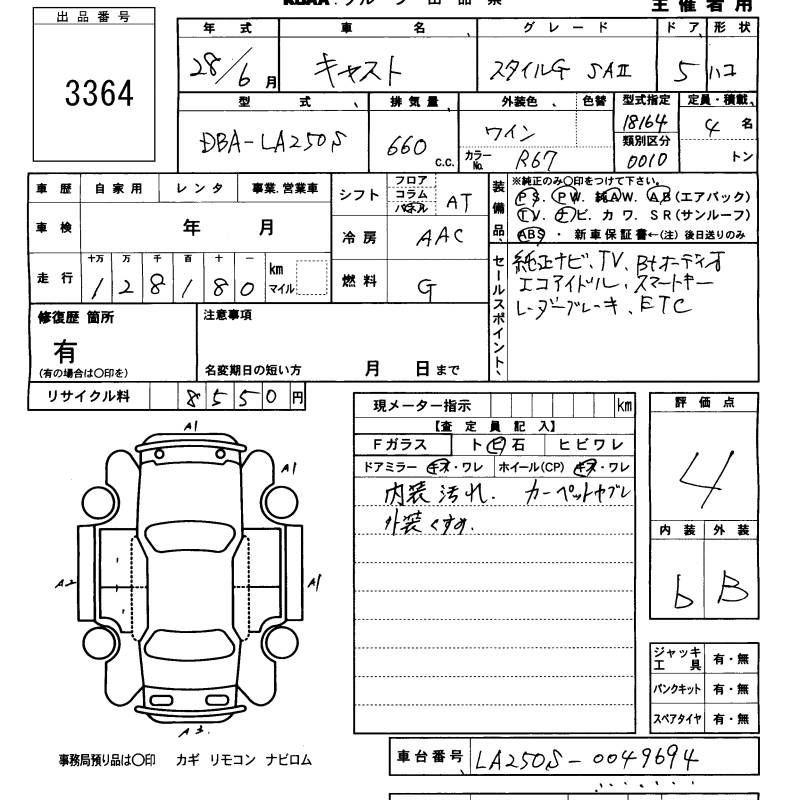 主催者用
出品番号
3364
年式 車名 グレード ドア 形状
28/6月 キャスト スタイルG SAⅡ 5 ハコ
型式 排気量 外装色 色替 型式指定 定員・積載
DBA-LA250S 660 C.C. ワイン 18164 4名
カラーNo. R67 類別区分 0010 トン
車歴 自家用 レンタ 事業.営業車
車検 年 月
走行 十万 万 千 百 十 一 km マイル
1 2 8 1 8 0
シフト フロア コラム パネル AT
冷房 AAC
燃料 G
装備品
※純正のみ○印をつけて下さい。
PS. PW. 純AW. AB(エアバック)
TV. ナビ. カワ. SR(サンルーフ)
ABS ・ 新車保証書←(注) 後日送りのみ
セールスポイント
純正ナビ、TV、Btオーディオ
エコアイドル、スマートキー
レーダーブレーキ、ETC
修復歴 箇所
有
(有の場合は○印を)
注意事項
名変期日の短い方 月 日まで
リサイクル料 8550円
現メーター指示 km
【査定員記入】
Fガラス トビ石 ヒビワレ
ドアミラー キズ・ワレ ホイール(CP) キズ・ワレ
内装汚れ. カーペットヤブレ
外装くすみ.
評価点
4
内装 外装
b B
ジャッキ工具 有・無
パンクキット 有・無
スペアタイヤ 有・無
A1
A1
A2
A1
A3.
事務局預り品は○印 カギ リモコン ナビロム
車台番号 LA250S-0049694